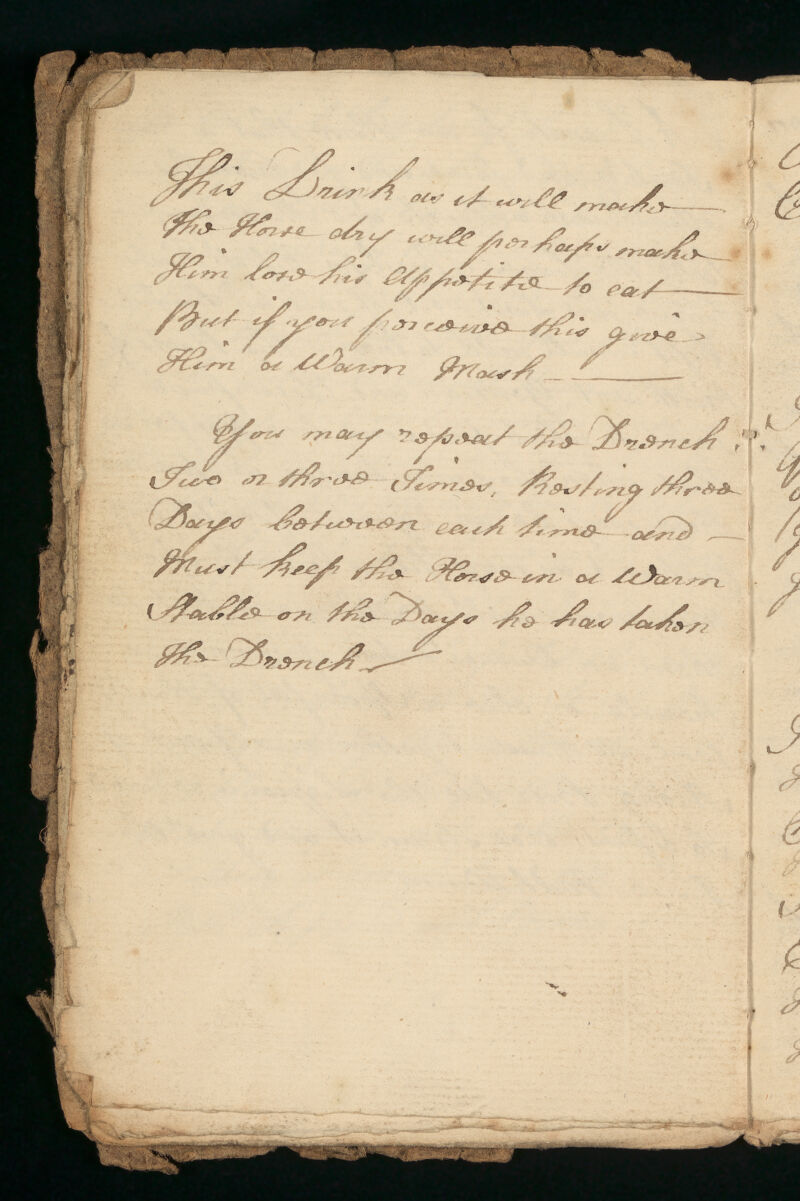 This Drink as it will make
The Horse dry will perhaps make
Him lose his Appetite to eat
But if you perceive this give
Him a Warm Mash
You may repeat the Drench
Two or three Times, Resting three
Days between each time and
Must keep the Horse in a Warm
Stable on the Days he has taken
The Drench